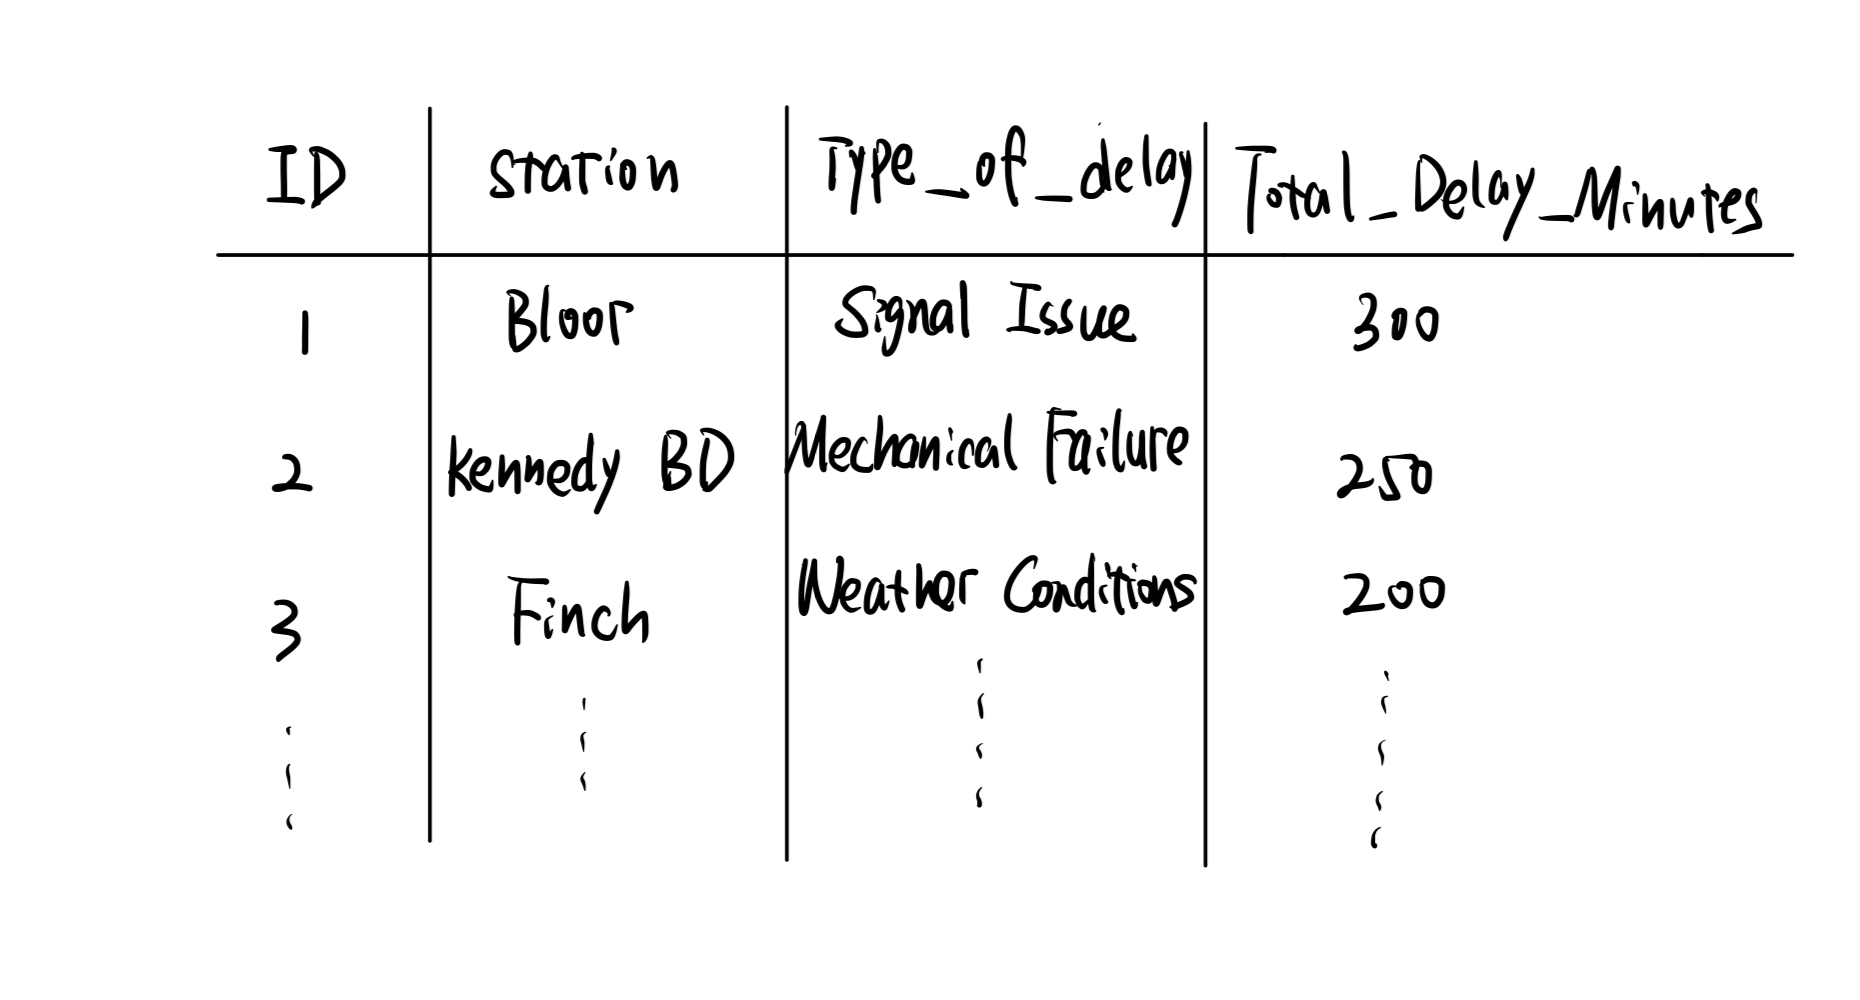 ID station Type_of_delay Total_Delay_Minutes
1 Bloor Signal Issue 300
2 Kennedy BD Mechanical Failure 250
3 Finch Weather Conditions 200